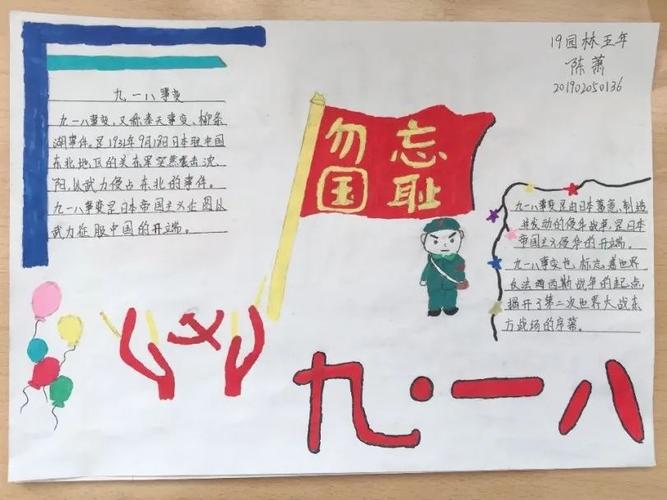 九·一八事变
九·一八事变，又称奉天事变、柳条
湖事件。是1931年9月18日日本驻中国
东北地区的关东军突然袭击沈
阳，以武力侵占东北的事件。
九·一八事变是日本帝国主义企图以
武力征服中国的开端。
勿忘
国耻
19园林五年
陈萧
201902050136
九·一八事变是由日本蓄意制造
并发动的侵华战争，是日本
帝国主义侵华的开端。
九·一八事变也标志着世界
反法西斯战争的起点，
揭开了第二次世界大战东
方战场的序幕。
九·一八